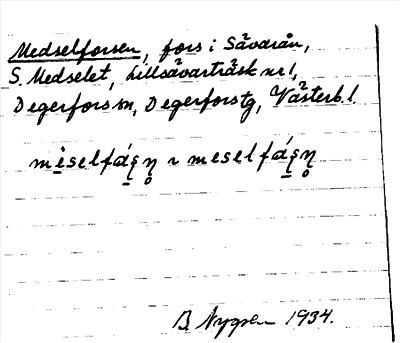 Medselforsen, fors i Sävarån,
S. Medselet, Lillsävarträsk nr 1,
Degerfors sn, Degerfors tg, Västerb. l.
mèselfá̱ș̥ṇ ~ meselfá̱ș̥ṇ
B. Nygren 1934.